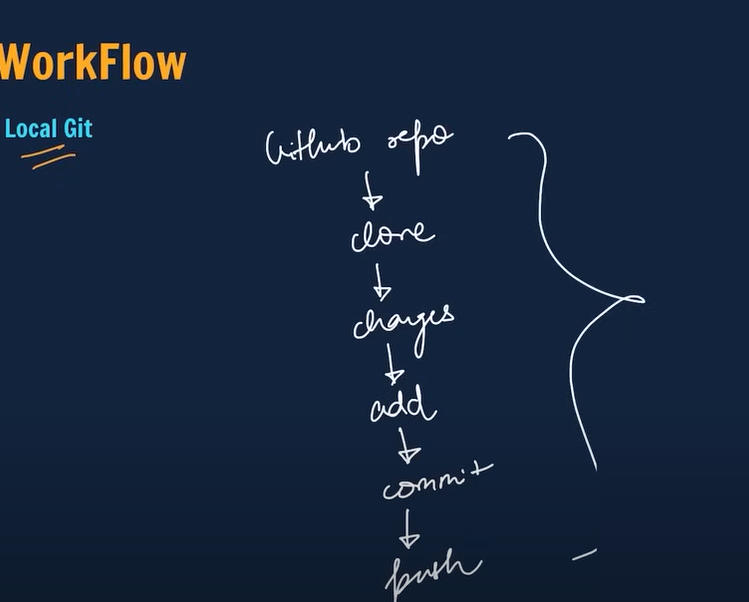 WorkFlow
Local Git
GitHub repo
clone
changes
add
commit
push